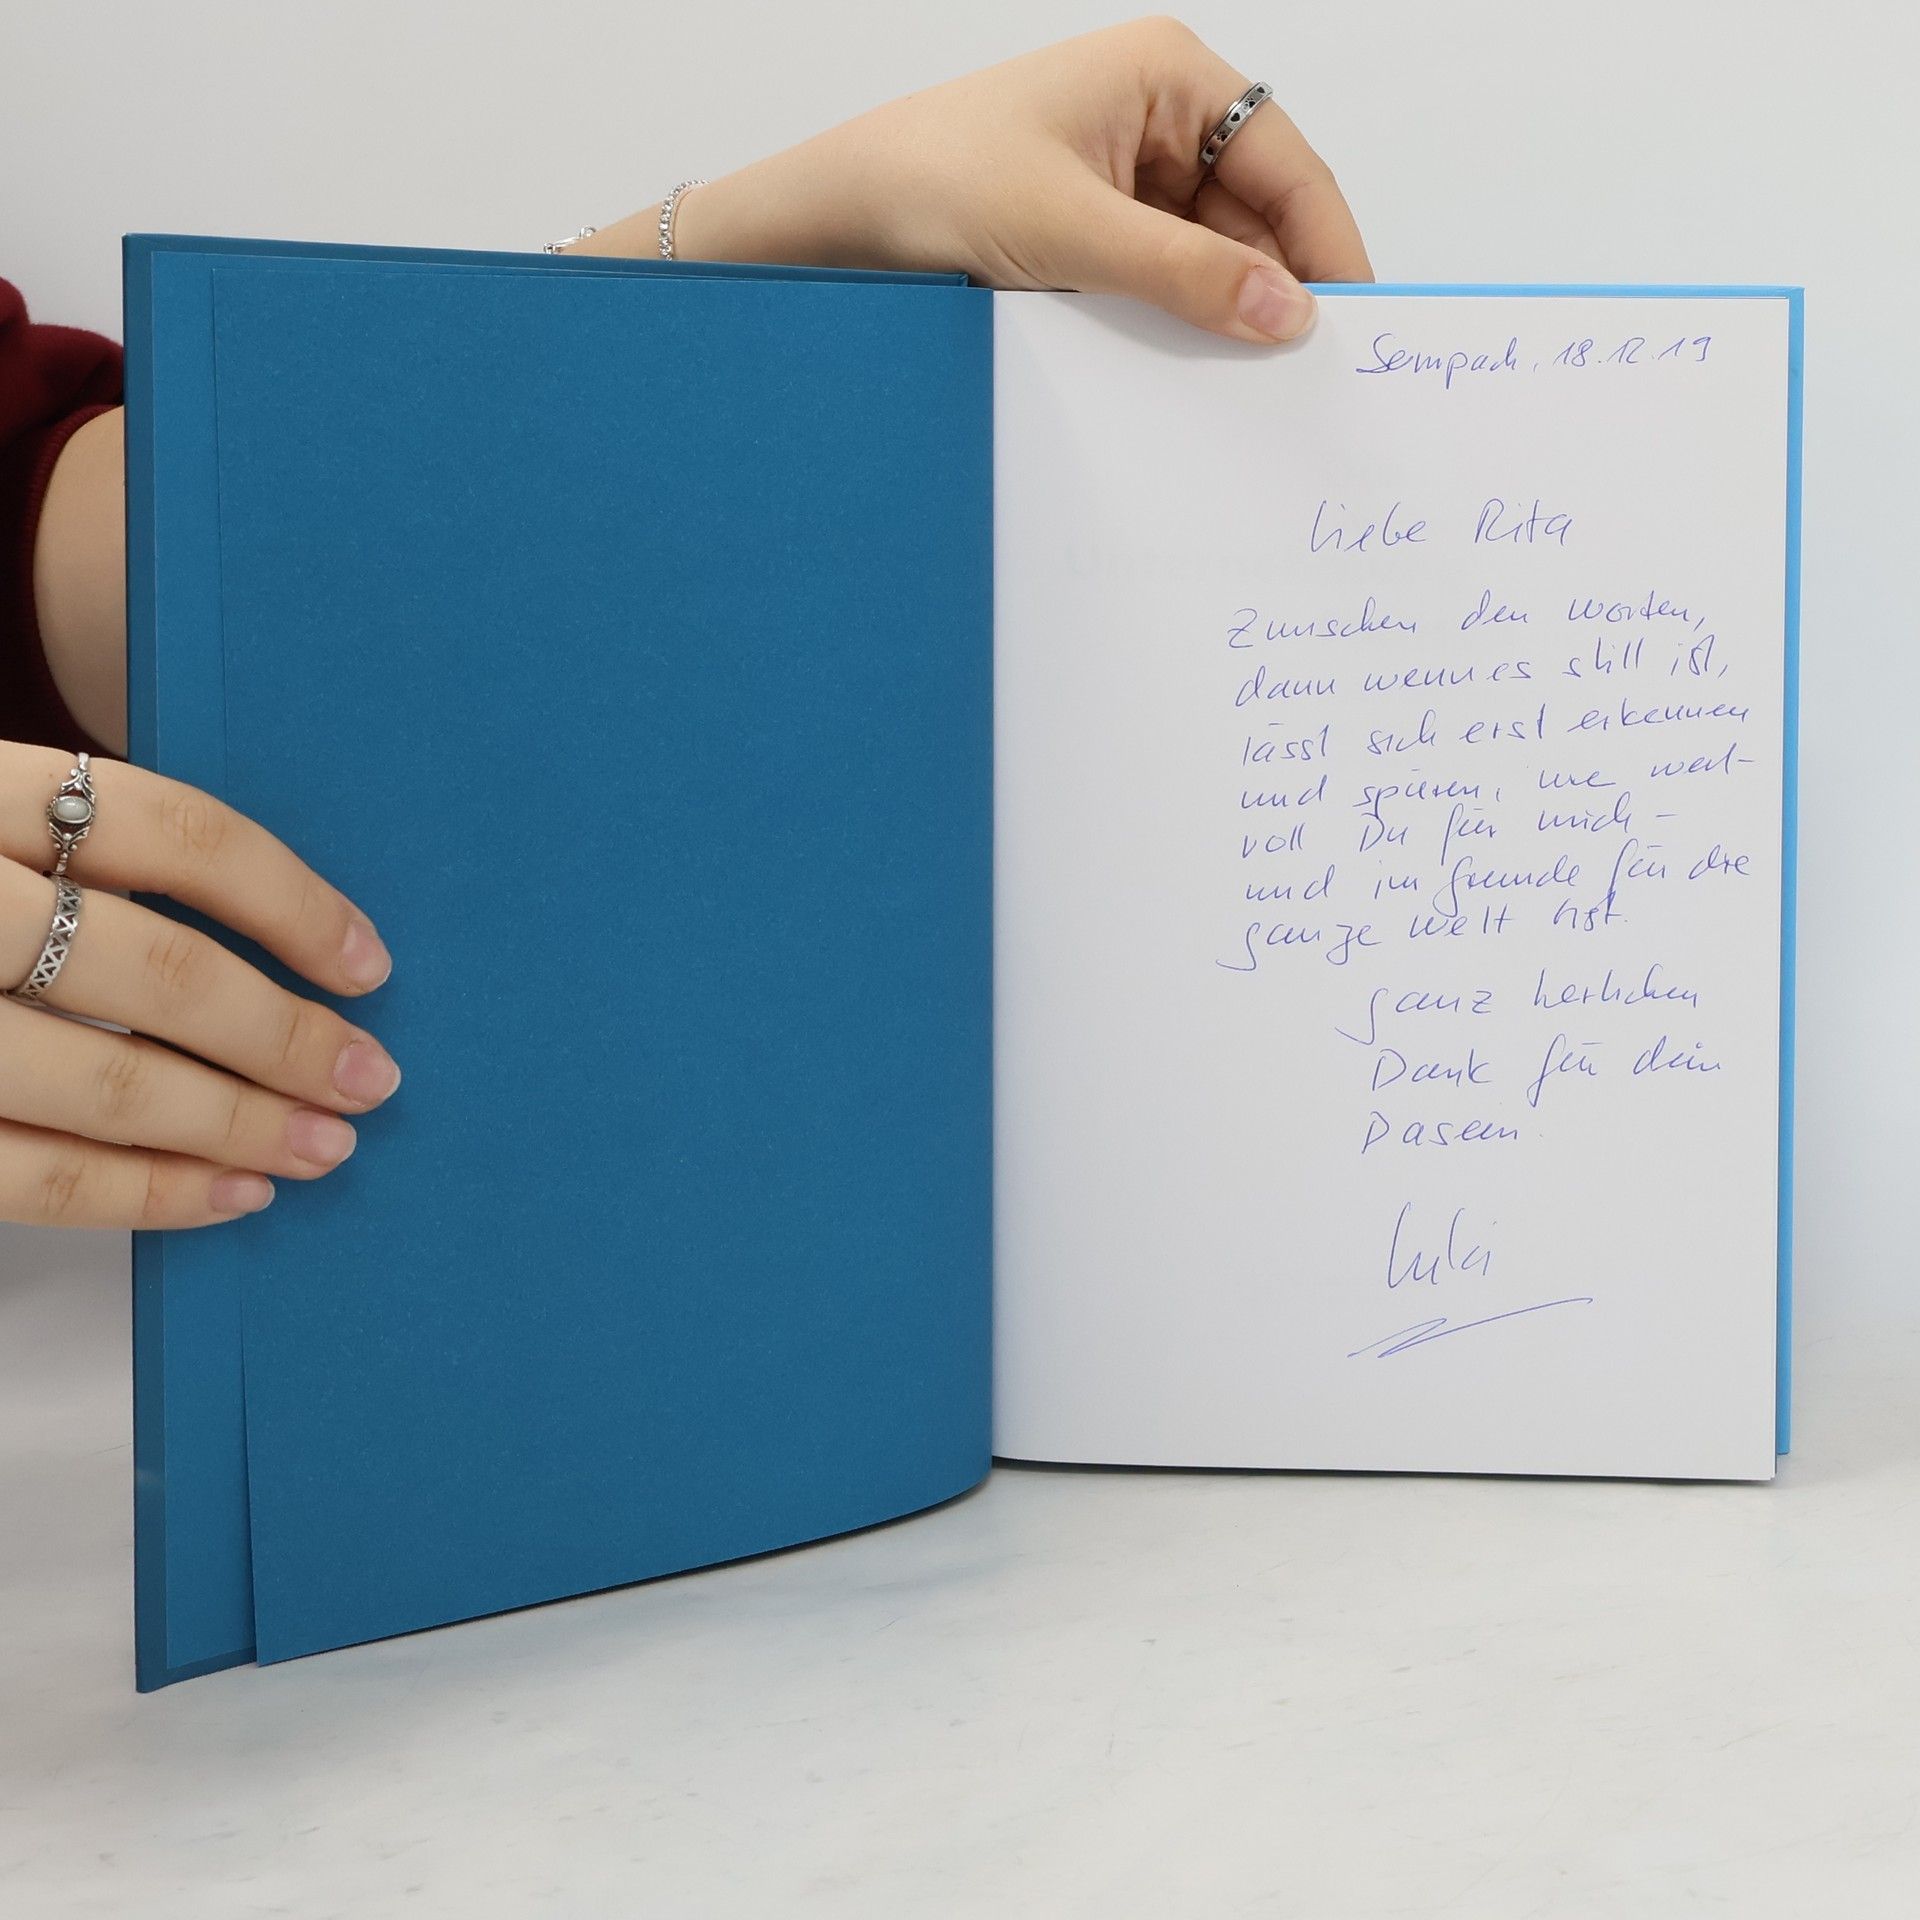 Sempach, 18.12.19
Liebe Rita
Zwischen den Worten,
dann wenn es still ist,
lässt sich erst erkennen
und spüren, wie wert-
voll Du für mich -
und im Grunde für die
ganze Welt bist.
Ganz herzlichen
Dank für dein
Dasein.